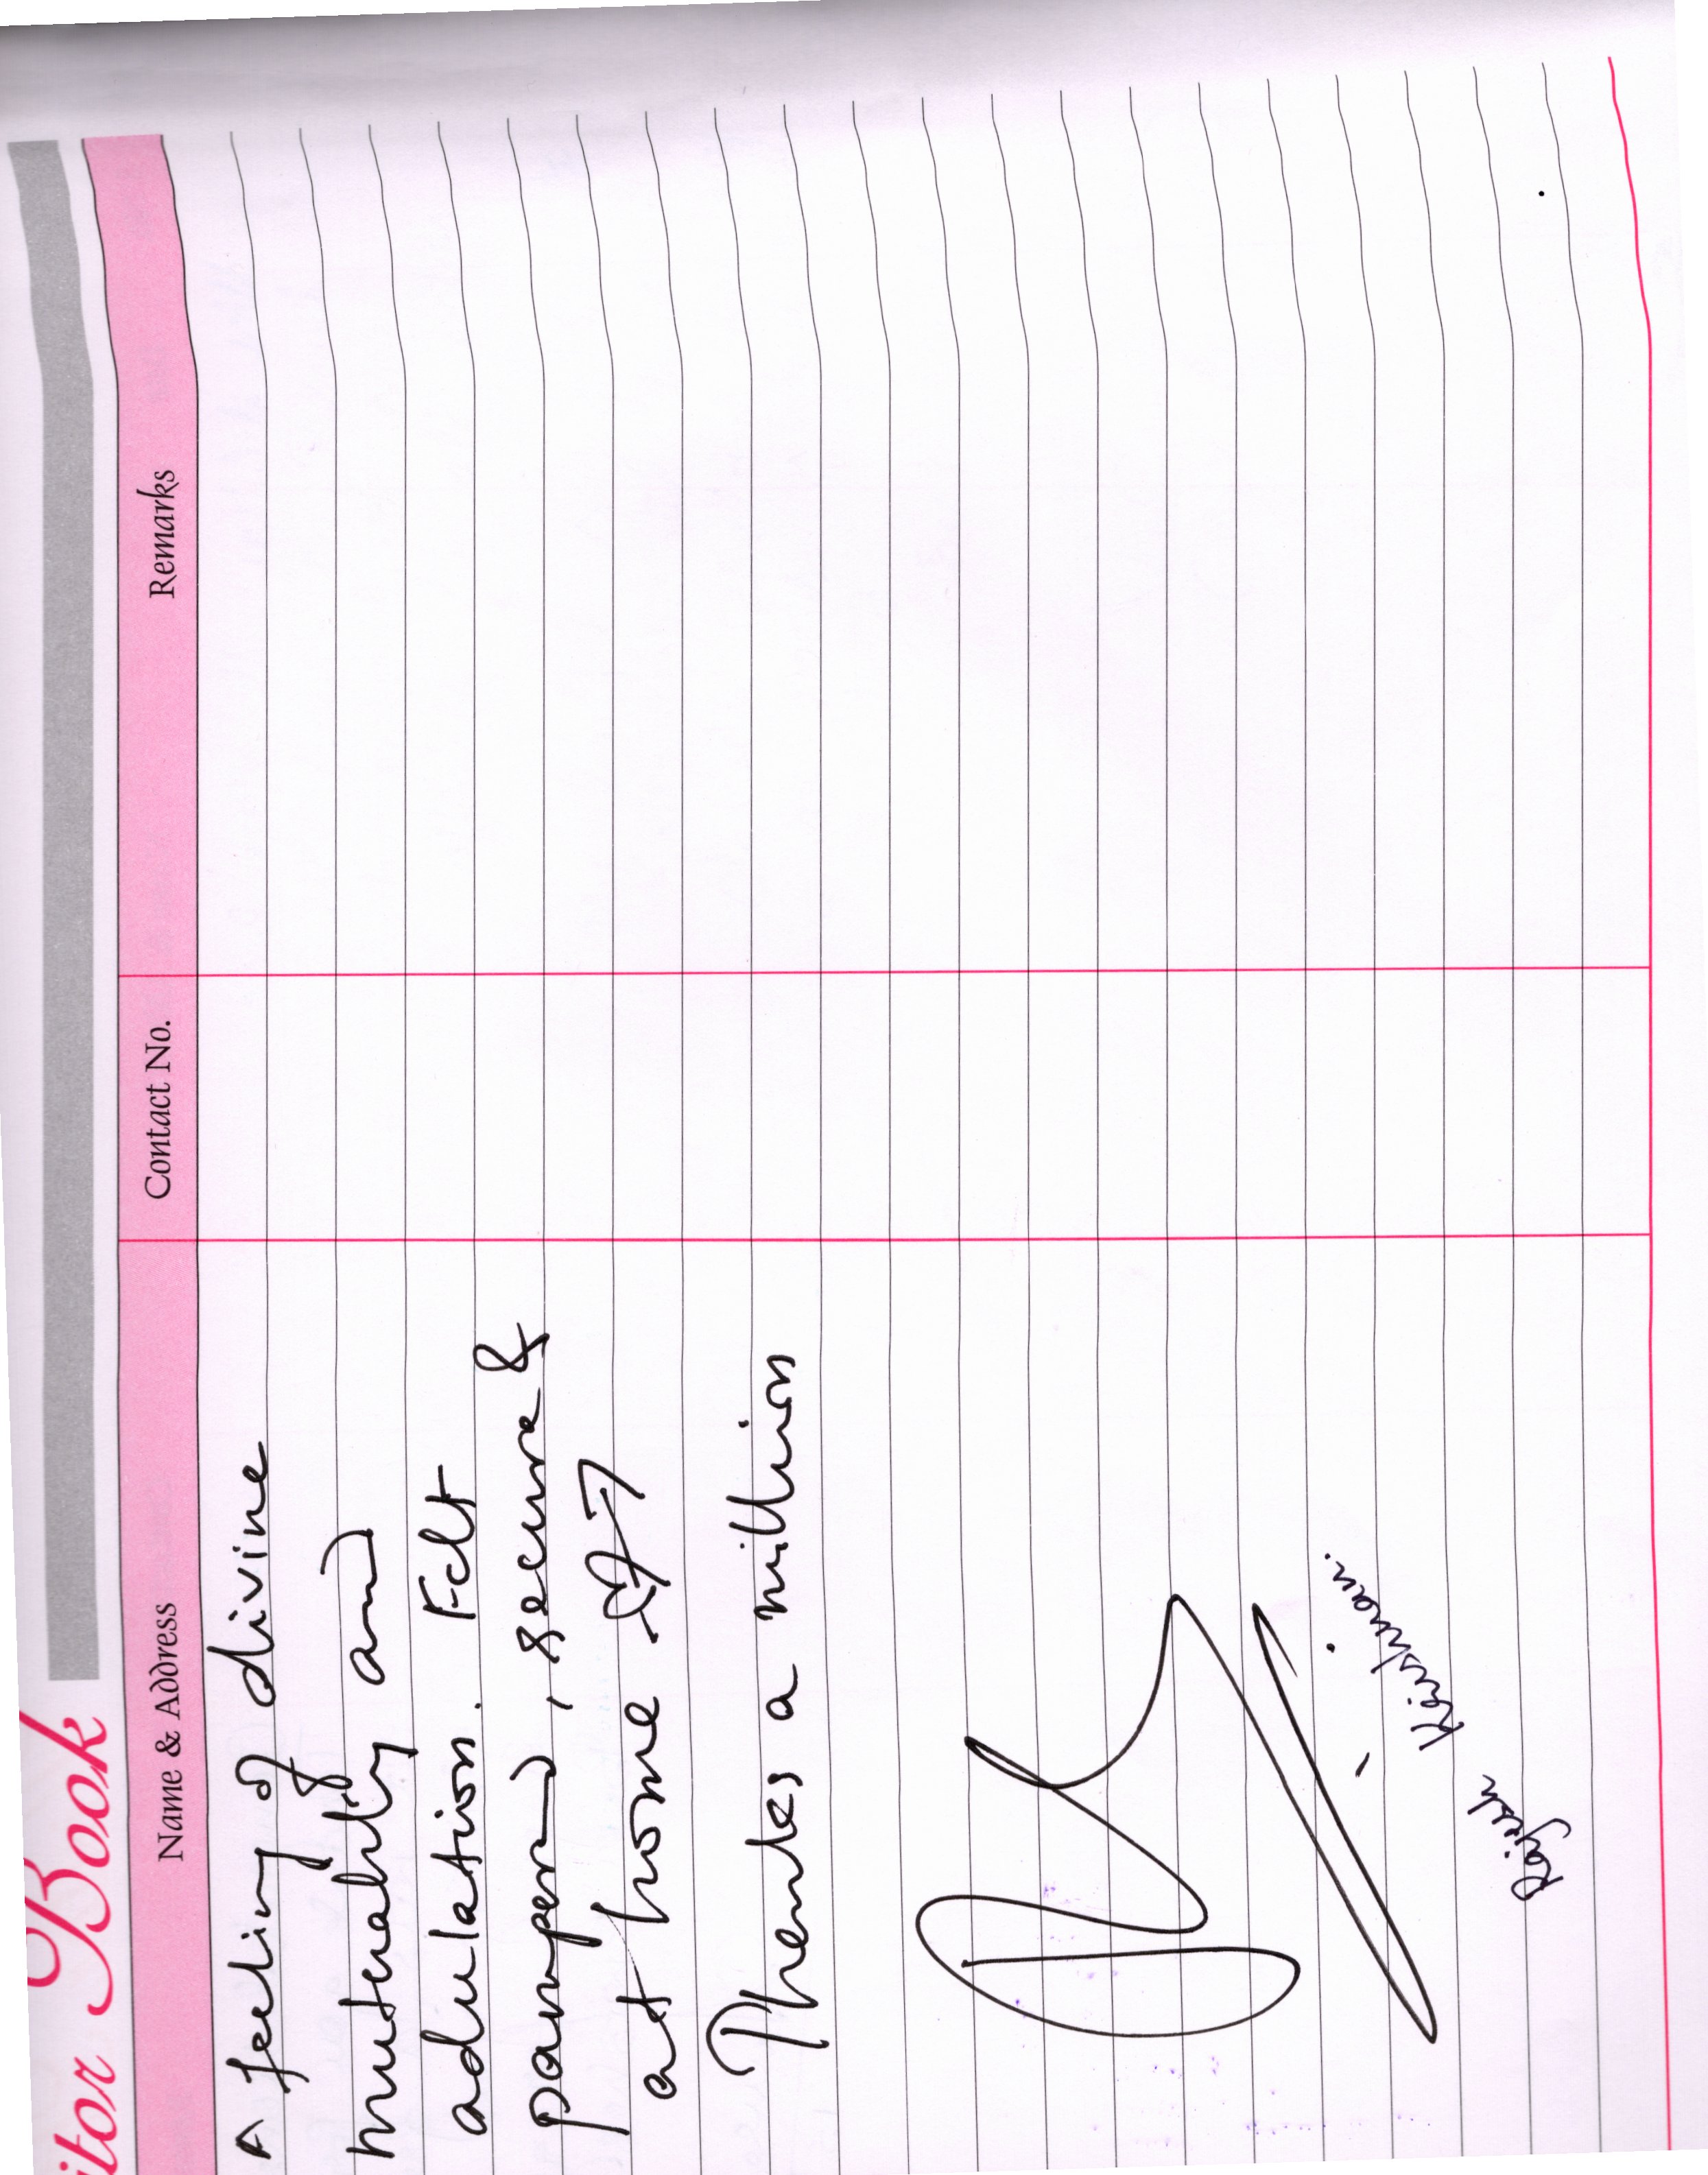 itor Book
Name & Address Contact No. Remarks
A feeling of divine
and
adulation. Felt
pampered, secure &
at home
Thanks a million
Rajesh Krishnan.